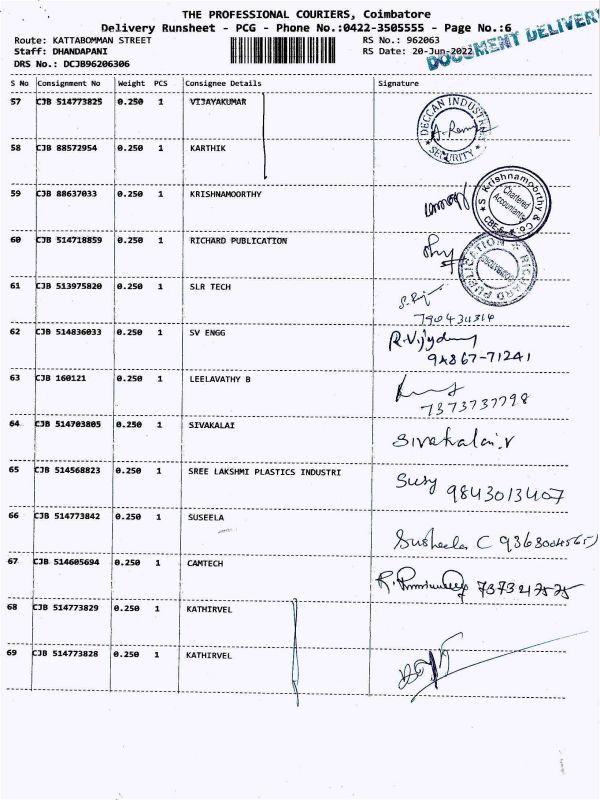 THE PROFESSIONAL COURIERS, Coimbatore
Delivery Runsheet - PCG - Phone No.:0422-3505555 - Page No.:6
Route: KATTABOMMAN STREET RS No.: 962063
Staff: DHANDAPANI RS Date: 20-Jun-2022
DOCUMENT DELIVERY
DRS No.: DCJB96206306
S No Consignment No Weight PCS Consignee Details Signature
57 CJB 514773825 0.250 1 VIJAYAKUMAR
DECCAN INDUSTR
SECURITY
58 CJB 88572954 0.250 1 KARTHIK
59 CJB 88637033 0.250 1 KRISHNAMOORTHY
S Krishnamoorthy & Co
Chartered
Accountants
CBE-6
60 CJB 514718859 0.250 1 RICHARD PUBLICATION
RICHARD PUBLICATION
61 CJB 513975820 0.250 1 SLR TECH
62 CJB 514836033 0.250 1 SV ENGG
94867-71241
63 CJB 160121 0.250 1 LEELAVATHY B
7373737798
64 CJB 514703805 0.250 1 SIVAKALAI
Sivakalai.v
65 CJB 514568823 0.250 1 SREE LAKSHMI PLASTICS INDUSTRI
Susy 9843013407
66 CJB 514773842 0.250 1 SUSEELA
Susheela C
67 CJB 514605694 0.250 1 CAMTECH
68 CJB 514773829 0.250 1 KATHIRVEL
69 CJB 514773828 0.250 1 KATHIRVEL